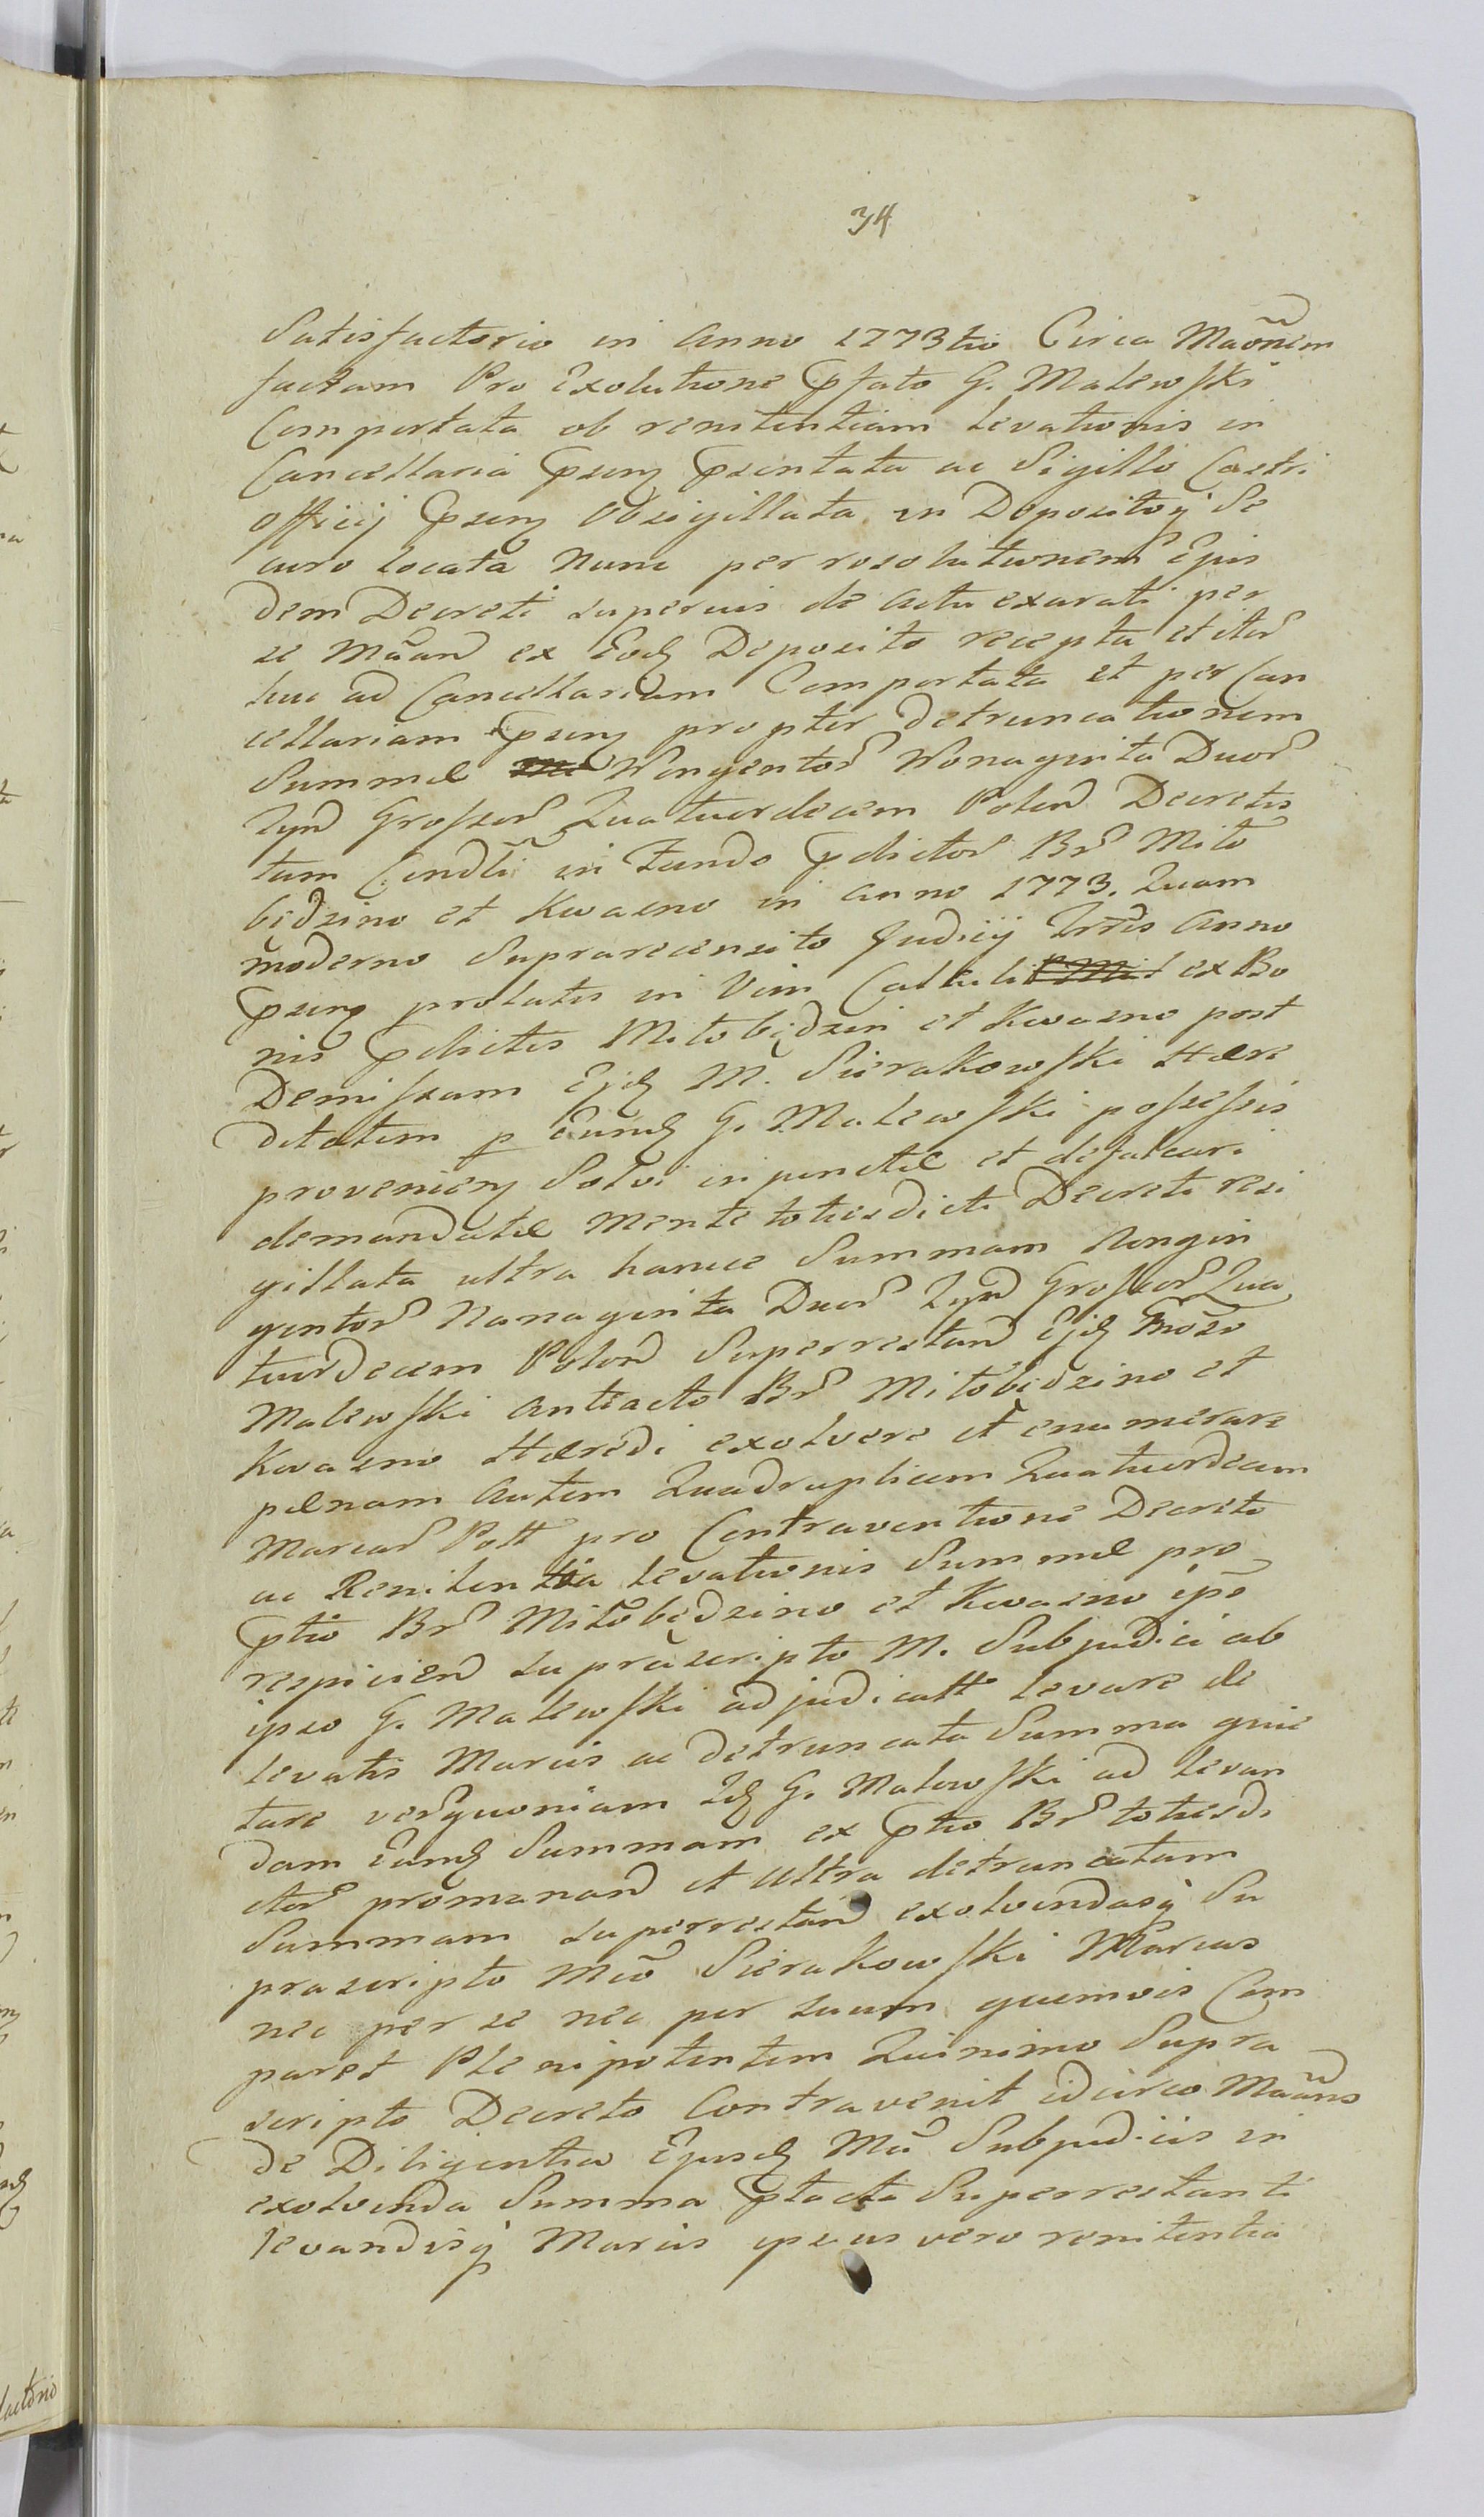 34
Satisfactorio in Anno 1773tio Circa Maõnem
factam Pro Exolutione Pfato G. Malewski
Comportata ob renitentiam levationis in
Cancellaria Psenz Psentata ac Sigillo Castri
officij Psenz Obsigillata in Depositoq̃ Se
curo locata Nunc per resolutionem Ejus
dem Decreti superius de Actu exarati per
se Mãand ex Eod Deposito recepta et iter
huc ad Cancellariam Comportata et per Can
cellariam Psenz propter detruncationem
Summæ Nongentor Nonaginta Duor
Złnd Grosser Quatuordecem Polon Decretis
tam Condli in Fundo Pdictor Br Miło
będzino et Kwasno in anno 1773. Quam
moderno Suprarecensito Judicij Trris Anno
Psenz prolatis in Vim Calkuli ex Bo
nis Pdictis Miłobędzin et Kwasno post
Demissam Ejd M. Sierakowski Hære
ditatem p Eund G. Malewski possessis
provenienz Solvi injunctæ et defalcari
demandatæ Mente totiesdicti Decreti resi
gillata ultra hance Summam Nongin
gentor Nanaginta Duor Złnd Grosser Qua
tuordecem Polon Superrestand Ejd Gnõso
Malewski Anteacto Br Miłobędzino et
Kwasno Hæredi exolvere et enumerare
pænam Autem Quadruplicem Quatuordecem
Marcar Poll pro Contraventione Decreto
ac Renitentia levationis Summæ pro
Ptio Br Miłobędzino et Kwasno ipso
respiciend suprascripto M. Subjudici ab
ipso G. Malewski adjudicatt levare de
levatis Marcis ac detruncata Summa quie
tare verquoniam Id G. Malewski ad levan
dam Eand Summam ex Ptio Br totiesdi
ctor promanand et Ultra detruncatam
Summam superrestand exolvendasq̃ Su
prascripto Mco Sierakowski Marcas
nec per se nec per suum quemvis Com
paret Plenipotentem Quinimo Supra
scripto Decreto Contravenit idcirco Maãns
de Diligentia Ejusd Mci Subjudicis in
exolvenda Summa Ptacta Superrestanti
levandisq̃ Marcis ipsius vero renitentia